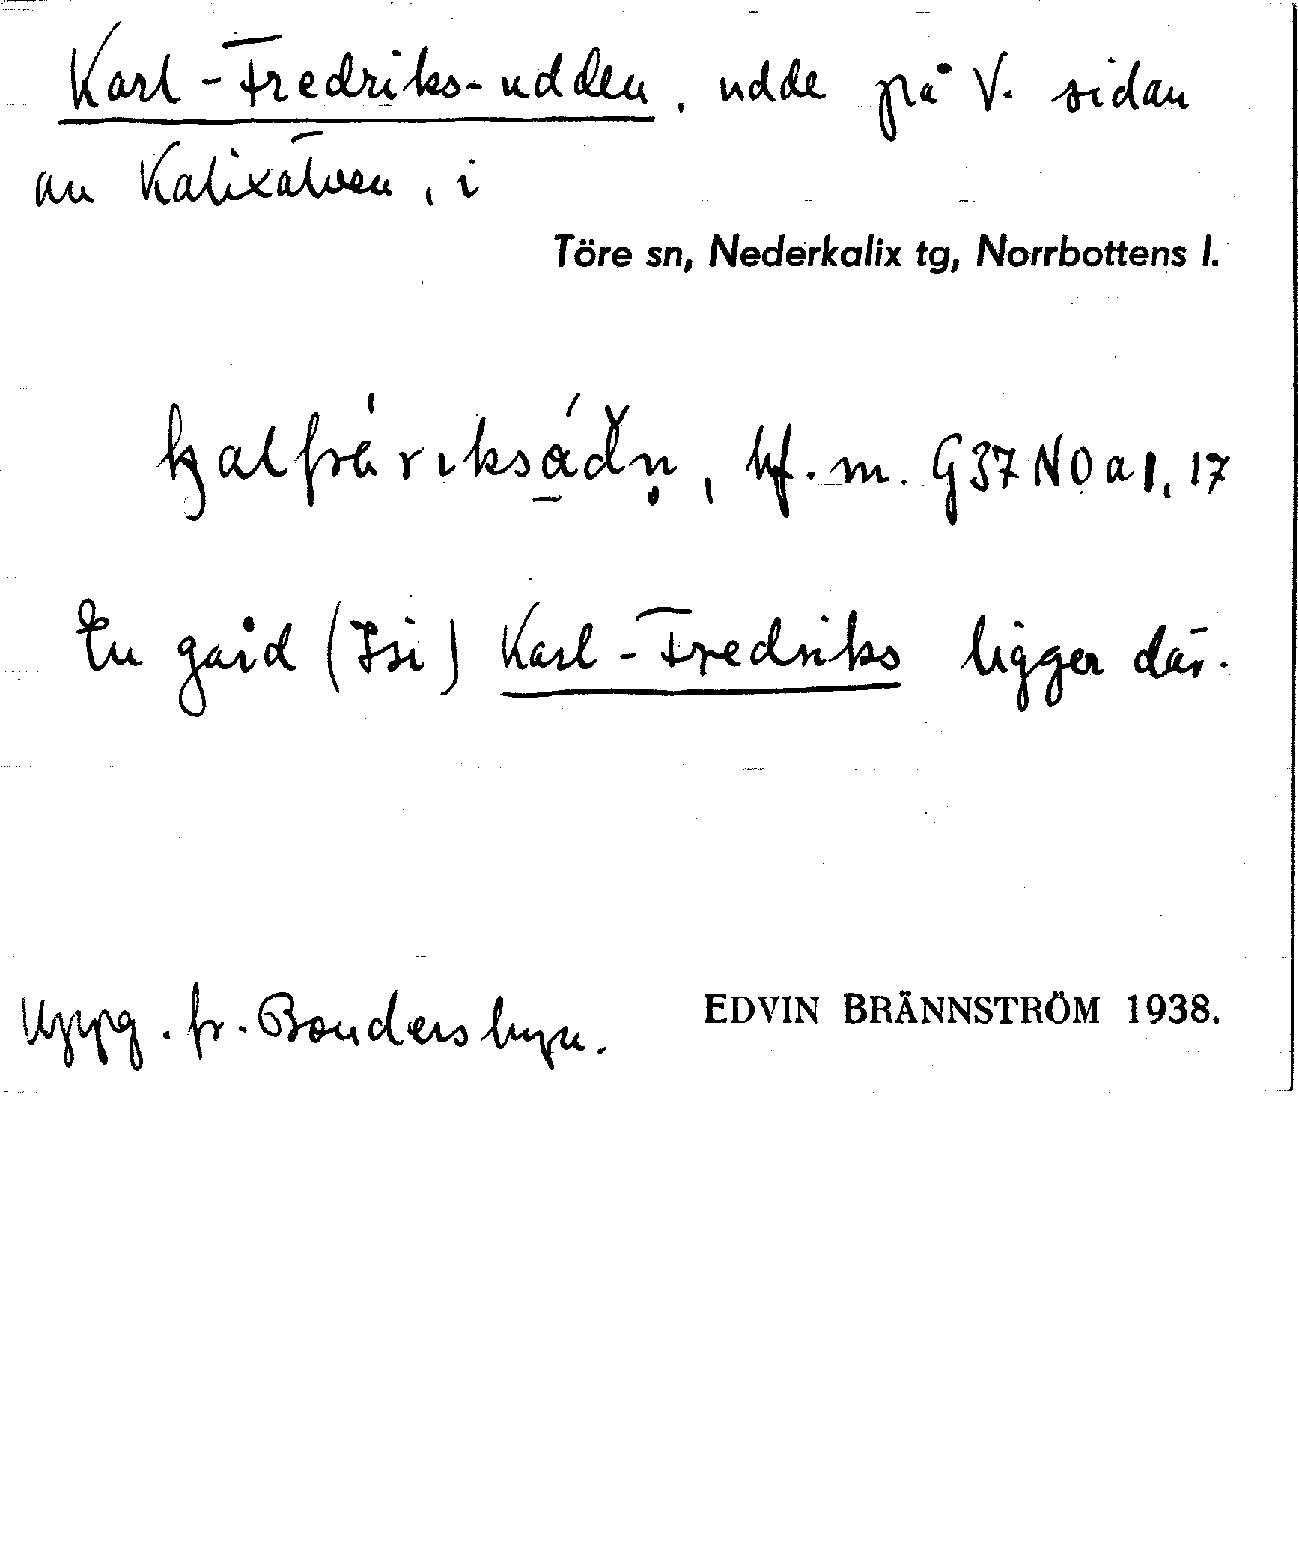 Karl-Fredriks-udden, udde på V. sidan
av Kalixälven, i
Töre sn, Nederkalix tg, Norrbottens l.
hf. m. G37 NO a 1, 17
En gård (Isi) Karl-Fredriks ligger där.
Uppg. fr. Bondersbyn.
EDVIN BRÄNNSTRÖM 1938.